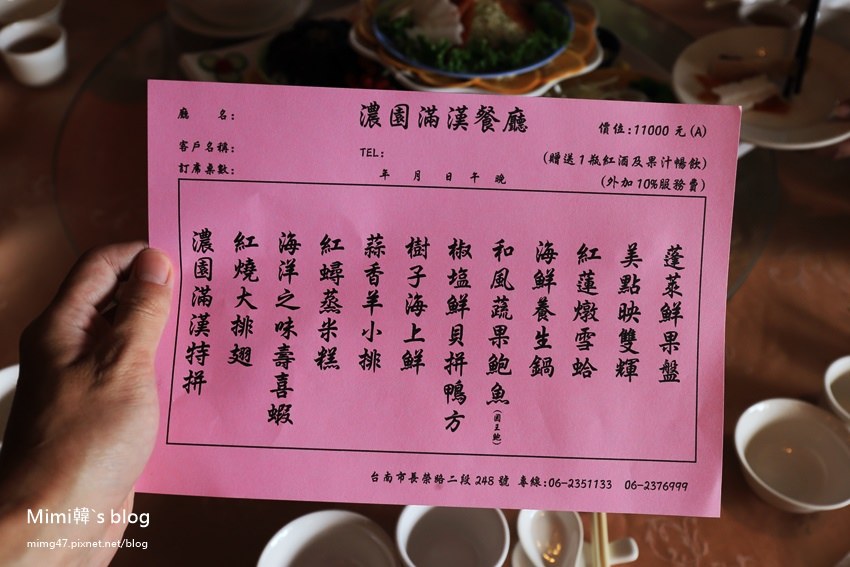 廳 名:
濃園滿漢餐廳
價位:11000 元(A)
客戶名稱:
TEL:
(贈送1瓶紅酒及果汁暢飲)
訂席桌數:
年 月 日 午 晚
(外加10%服務費)
濃園滿漢特拼
紅燒大排翅
海洋之味壽喜蝦
紅蟳蒸米糕
蒜香羊小排
樹子海上鮮
椒塩鮮貝拼鴨方
和風蔬果鮑魚(國王鮑)
海鮮養生鍋
紅蓮燉雪蛤
美點映雙輝
蓬萊鮮果盤
台南市長榮路二段248號 專線:06-2351133 06-2376999
Mimi韓`s blog
mimg47.pixnet.net/blog